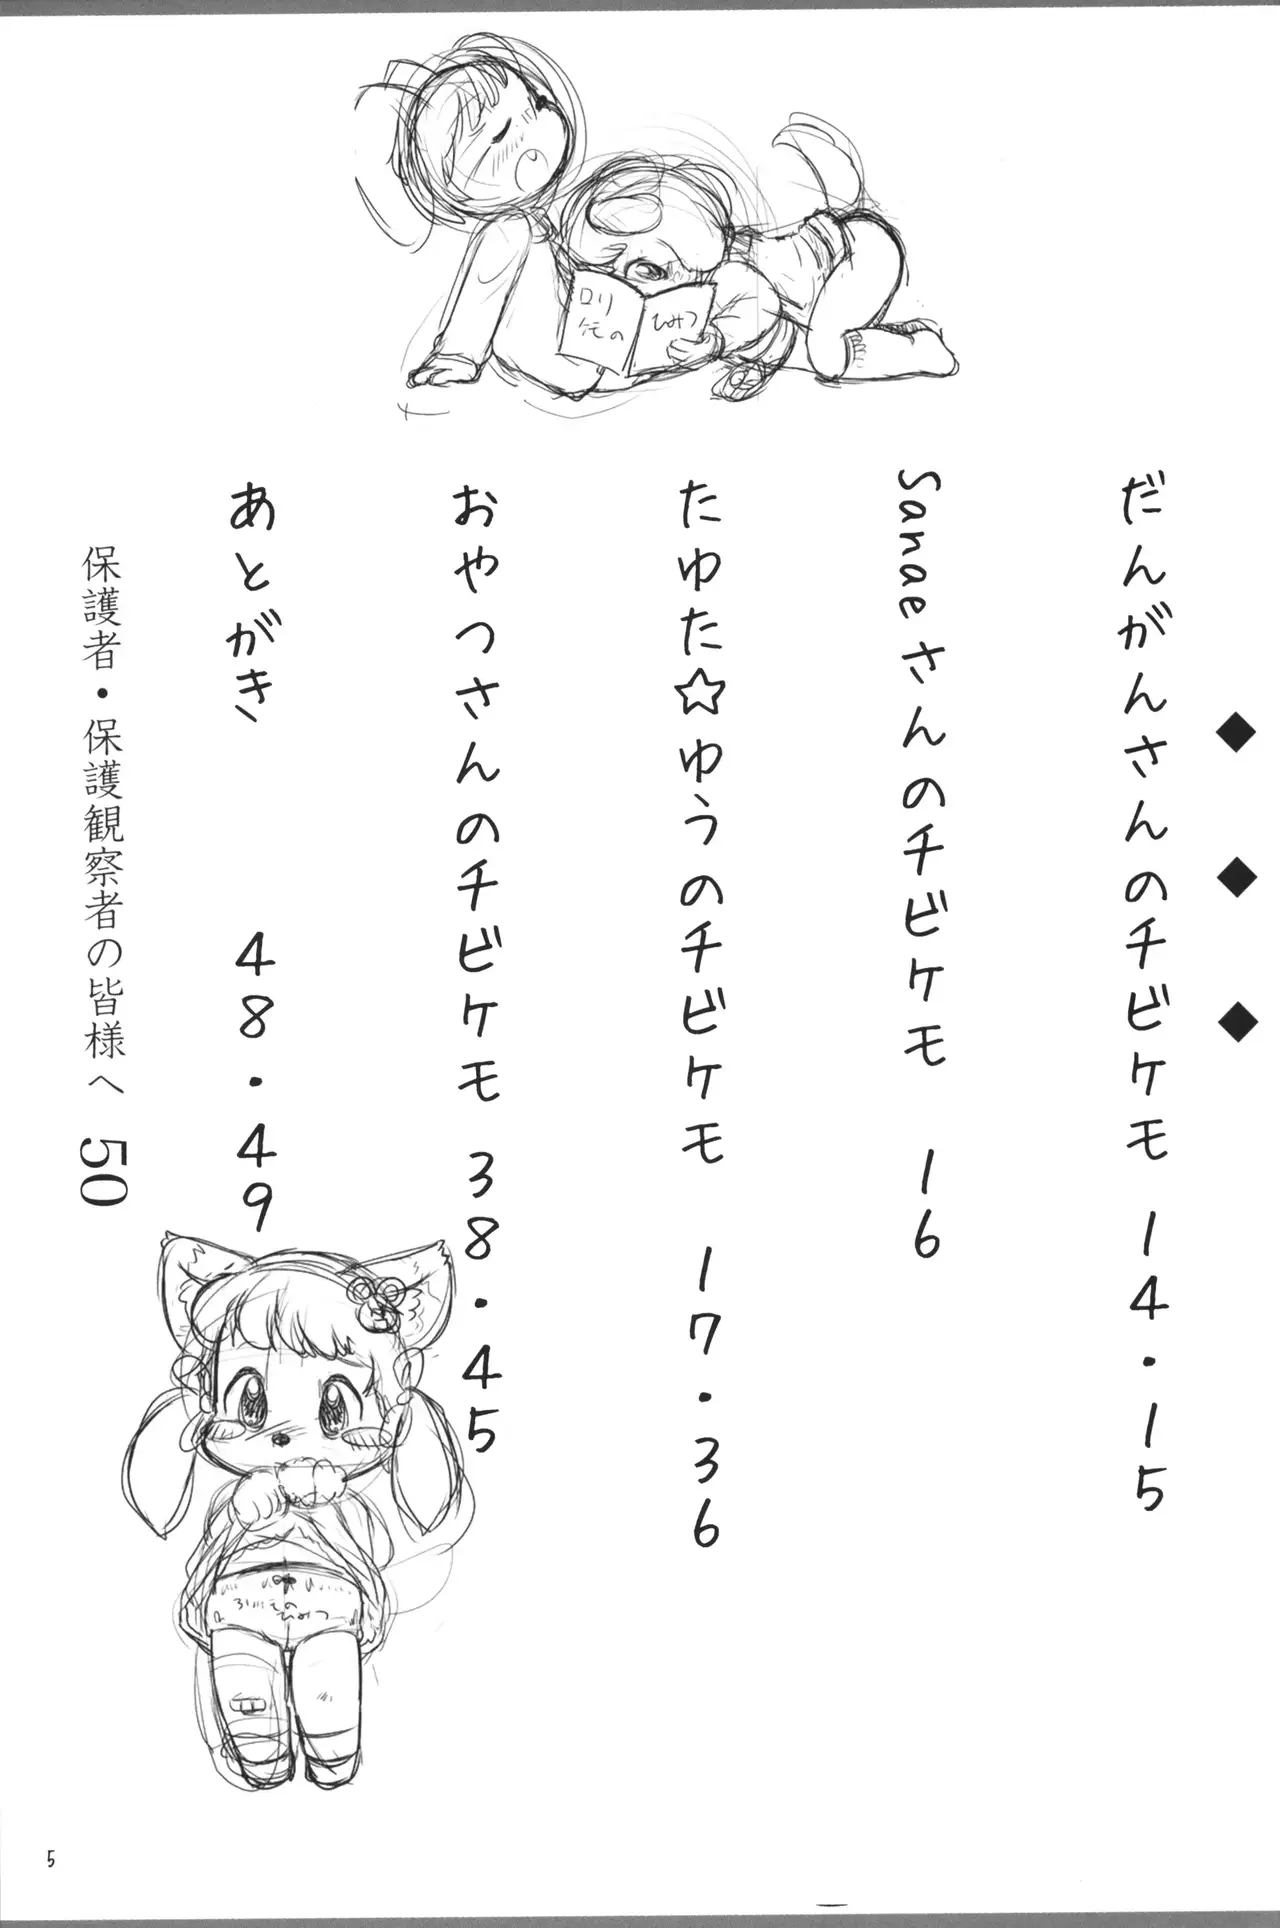 だんがんさんのチビケモ 14・15
Sanaeさんのチビケモ 16
たゆた☆ゆうのチビケモ 17・36
おやつさんのチビケモ 38・45
あとがき 48・49
保護者・保護観察者の皆様へ 50
ロリ
ケモの
ひみつ
ひみつ
5